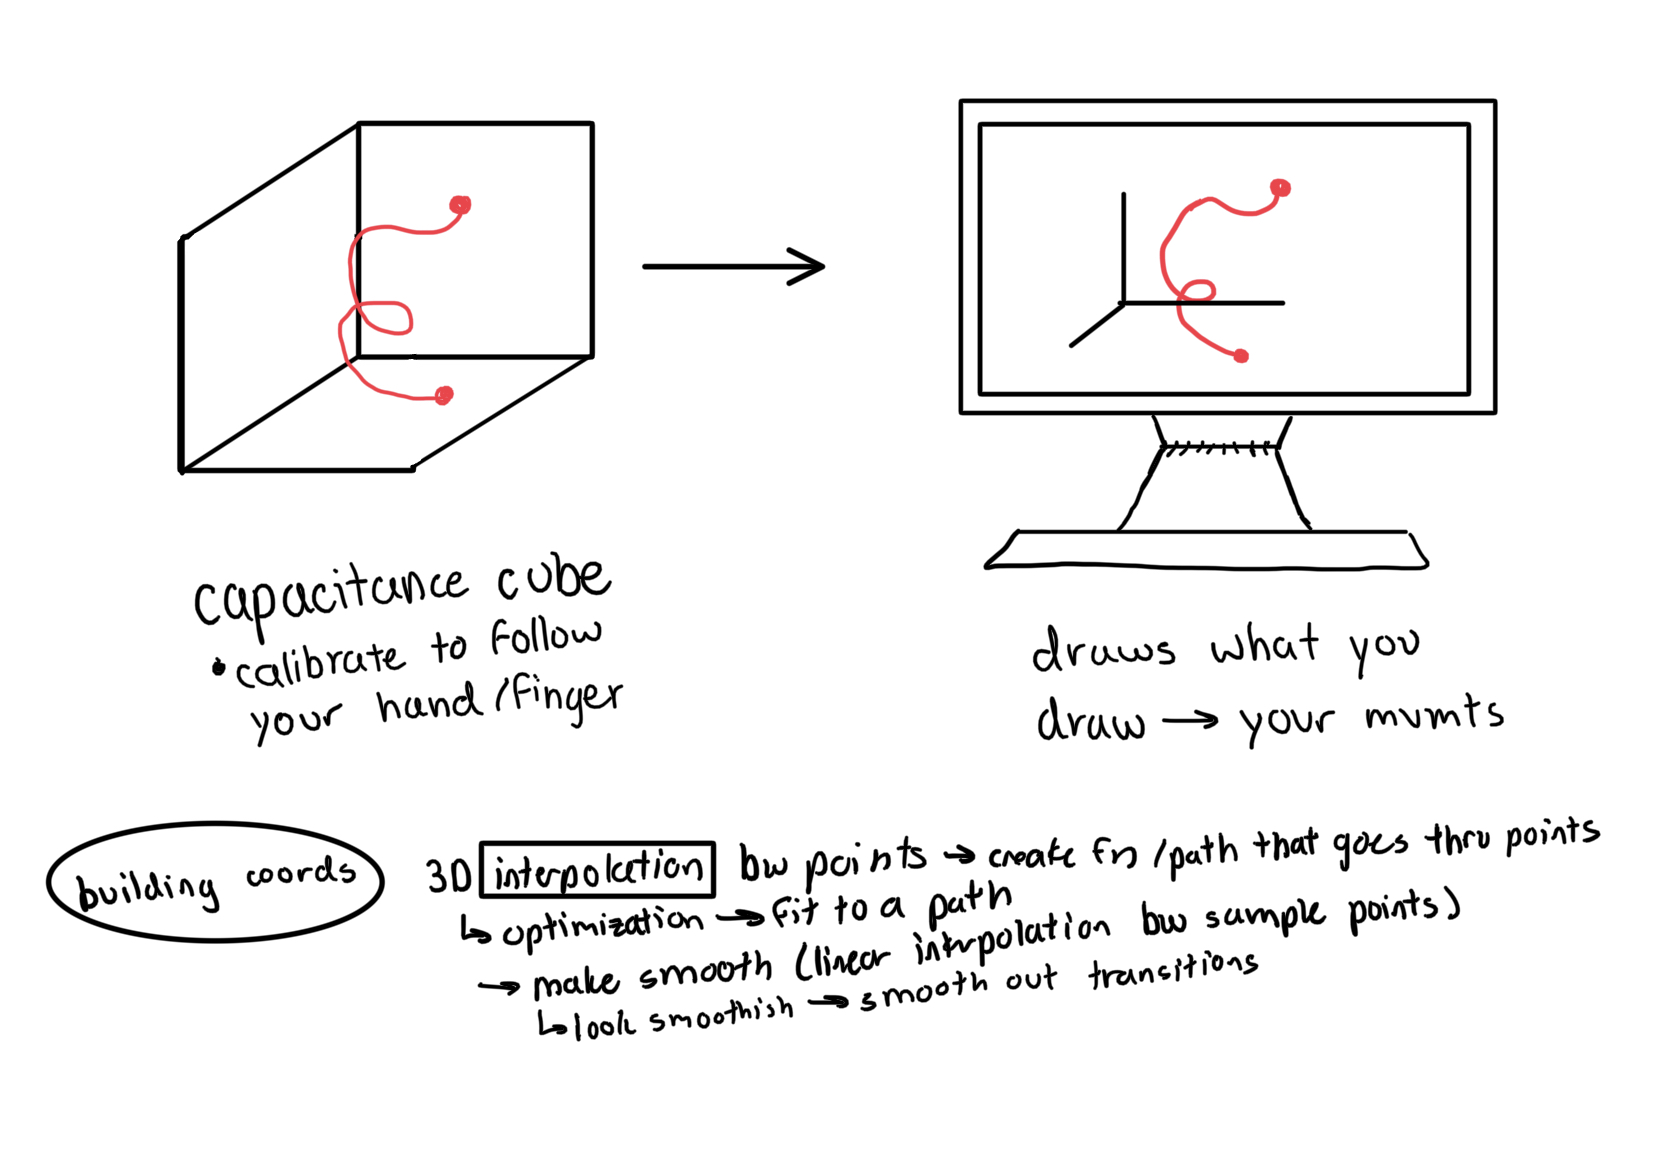 capacitance cube
• calibrate to follow
your hand/finger
draws what you
draw → your mvmts
building coords
3D interpolation bw points → create fn/path that goes thru points
↳ optimization → fit to a path
→ make smooth (linear interpolation bw sample points)
↳ look smoothish → smooth out transitions